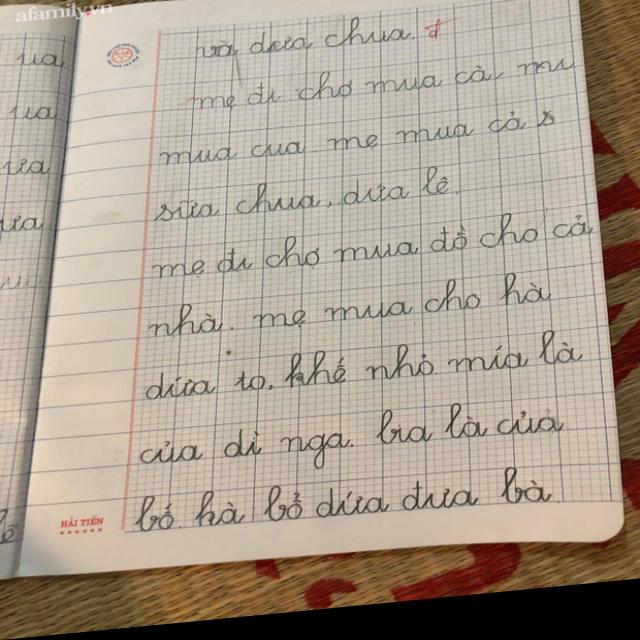 afamily.vn
và dưa chua.
ua
mẹ đi chợ mua cà, mu
ua
mua cua mẹ mua cả s
ưa
sữa chua, dưa lê.
ưa
mẹ đi chợ mua đồ cho cả
nhà. mẹ mua cho hà
dứa to, khế nhỏ mía là
của dì nga. bia là của
HẢI TIẾN
bố hà bổ dứa đưa bà